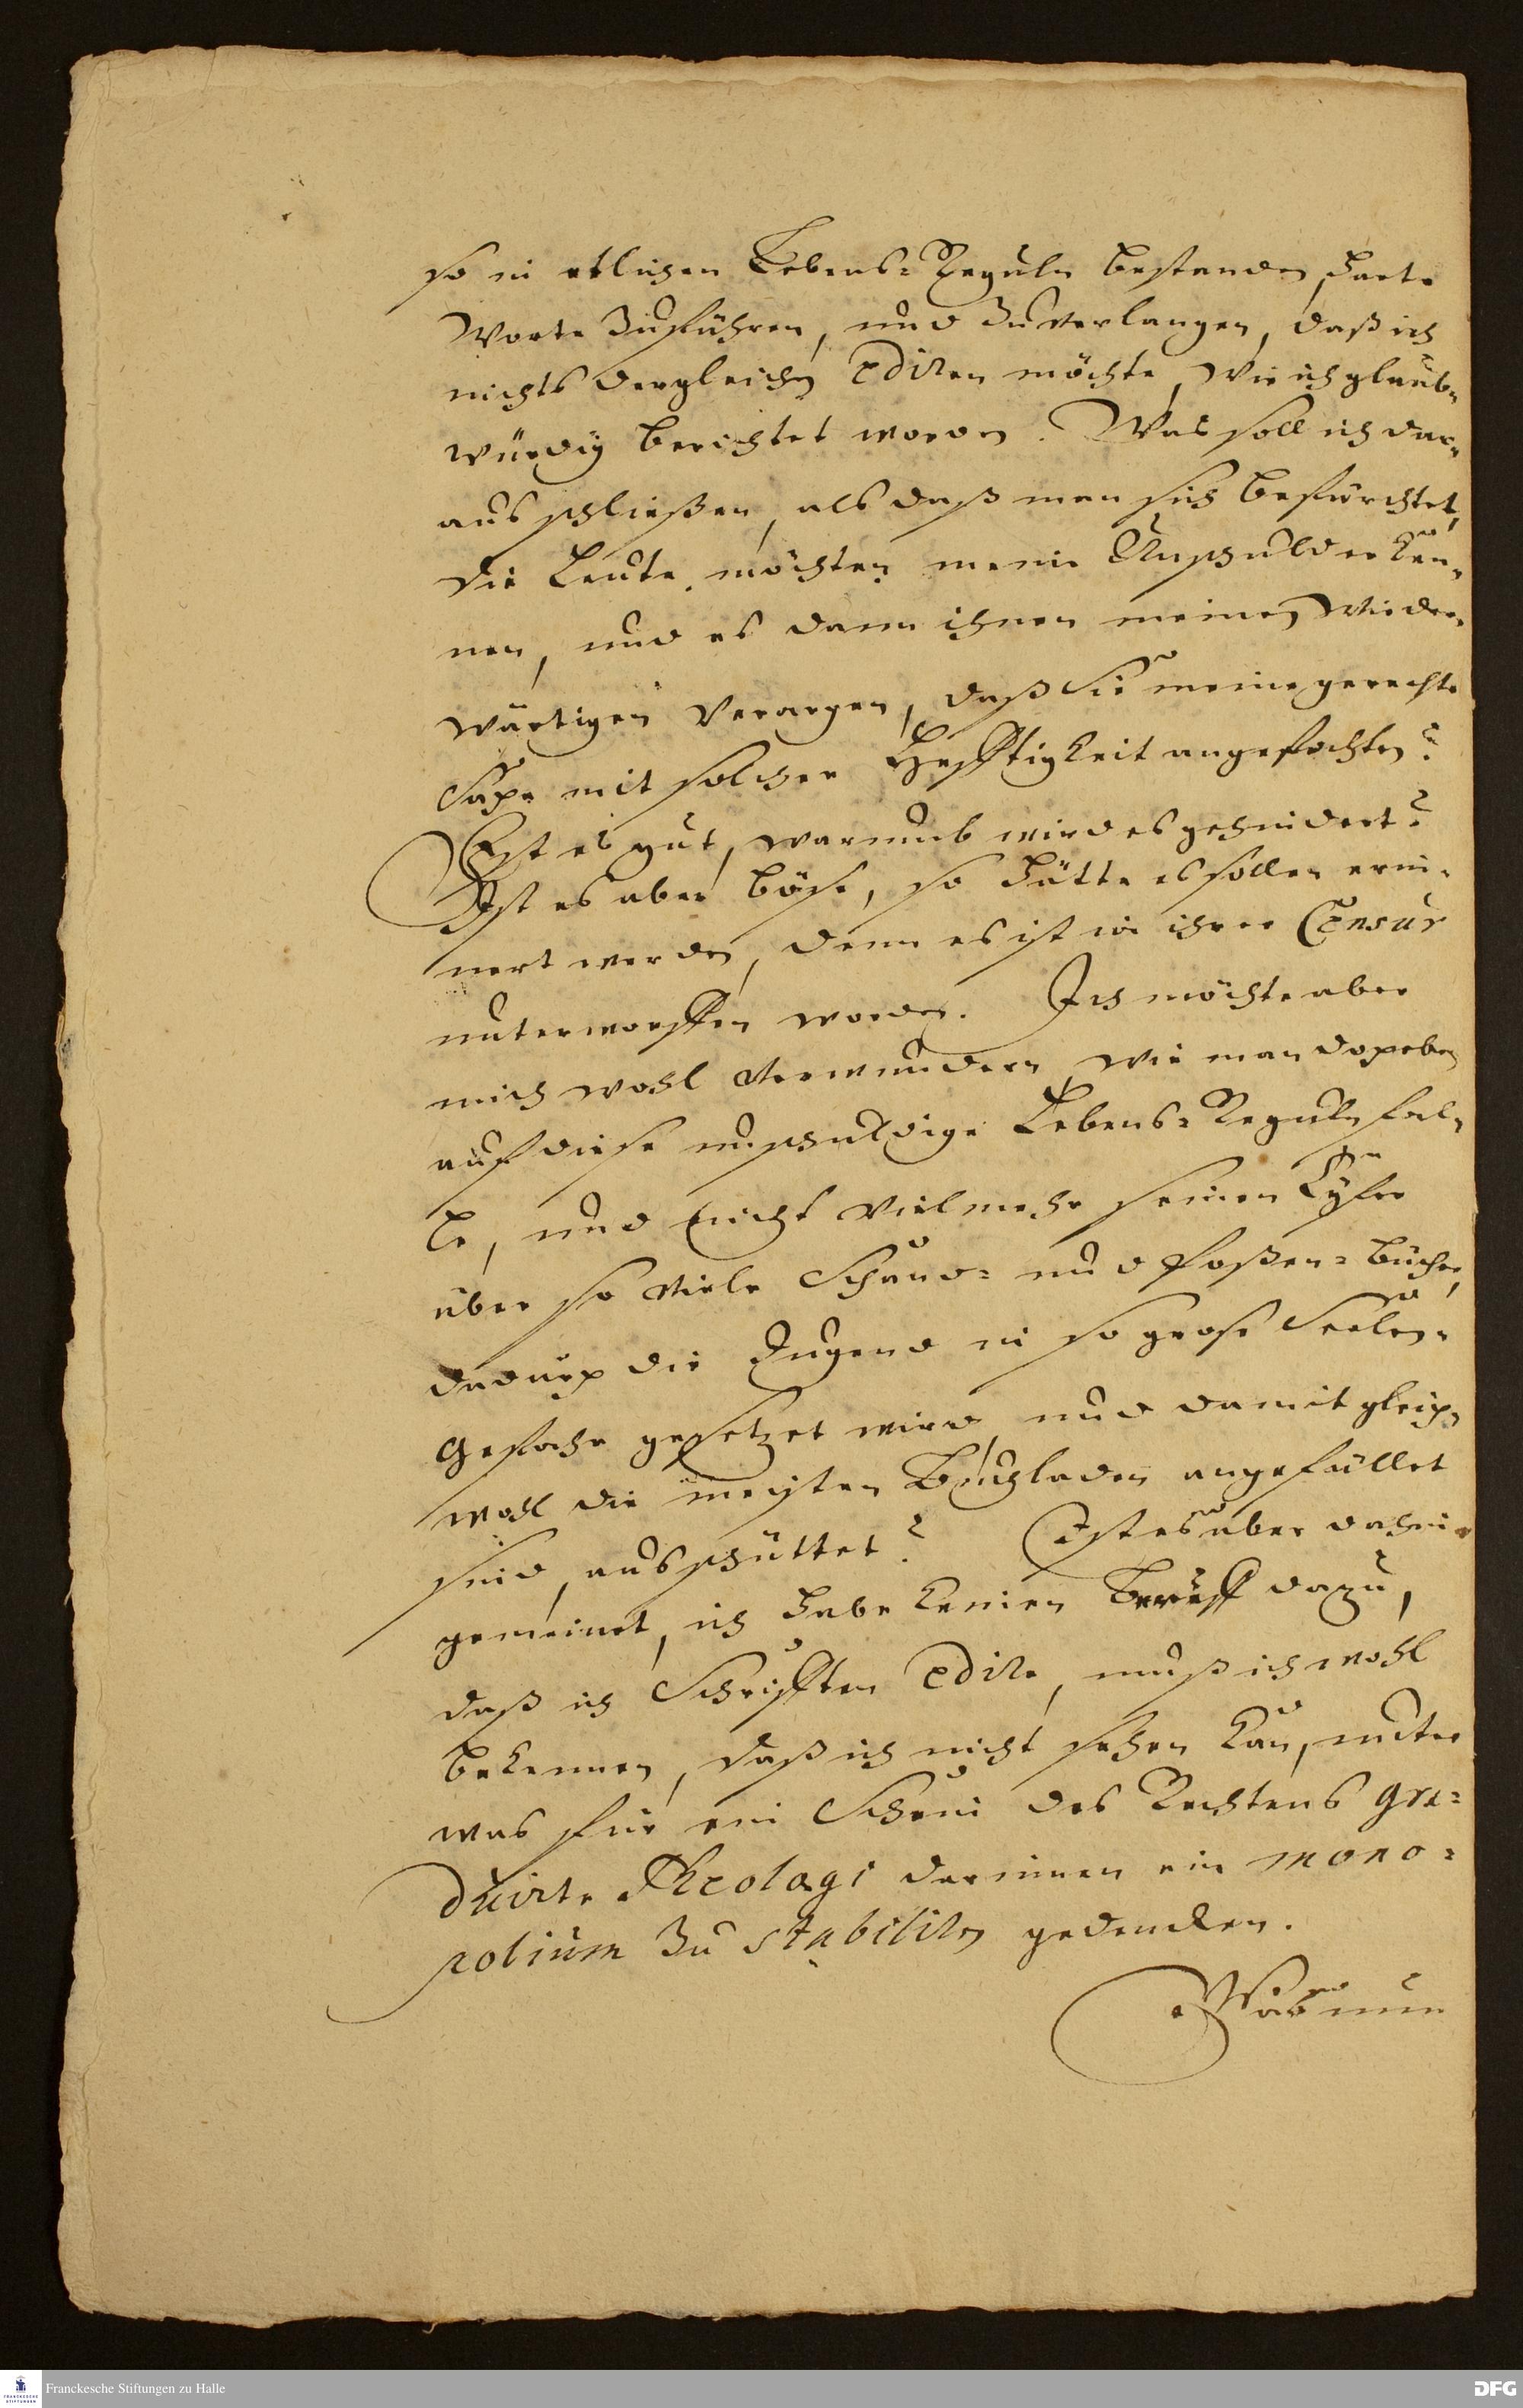 so in etlichen Lebens-Reguln bestanden, harte
Worte zuführen, und zuverlangen, daß ich
nichts dergleichen ediren möchte, wie ich glaub-
würdig berichtet worden. Was soll ich dar-
aus schließen, als daß man sich befürchtet,
die Leute möchten meine Unschuld erken-
nen, und es dann ihnen meinen Wieder-
wärtigen verargen, daß Sie meine gerechte
Sache mit solcher Hefftigkeit angefochten?
Ist es gut, warumb wird es gehindert?
Ist es aber böse, so hätte es sollen erin-
nert werden, denn es ist in ihrer Censur
unterworffen worden. Ich möchte aber
mich wohl verwundern, wie man doch eben
auf diese unschuldige Lebens-Reguln fal-
le, und nicht vielmehr seinen Eyfer
über so viele Schand- und Possen-bücher,
dadurch die Jugend in so große Seelen-
Gefahr gesetzet wird, und damit gleich-
wohl die meisten Buchladen angefüllet
sind, ausschüttet? Ist es aber dahin
gemeinet, ich habe keinen Beruff dazu,
daß ich Schrifften edire, muß ich wohl
bekennen, daß ich nicht sehen kan, unter
was für ein Schein des Rechtens gra-
duirte Theologi darinnen ein mono-
polium zu stabiliren gedencken.
Was nun
Franckesche Stiftungen zu Halle
FRANCKESCHE STIFTUNGEN
DFG